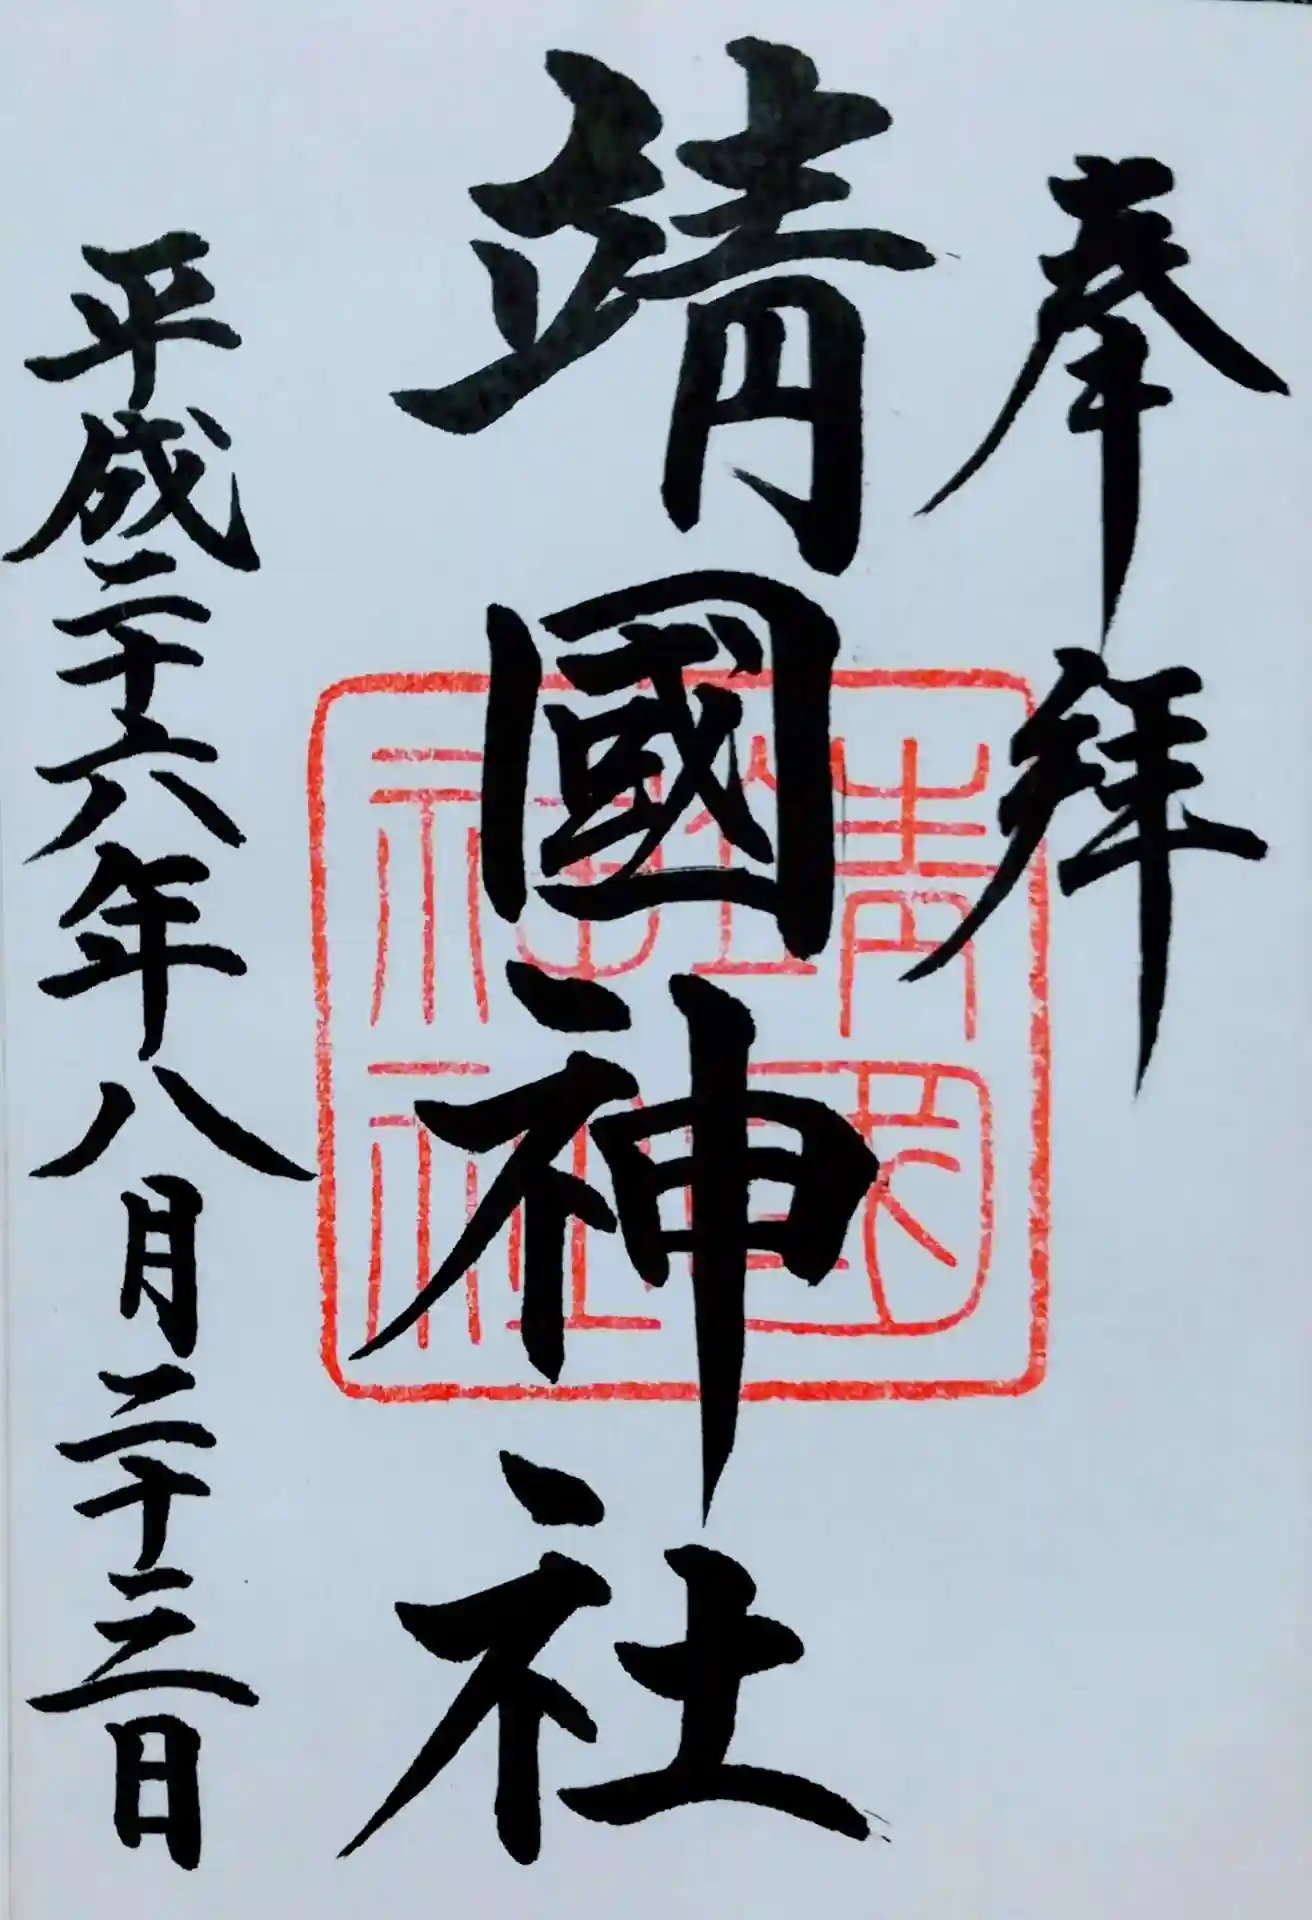 奉拝
靖國神社
平成二十六年八月二十三日
靖国
神社